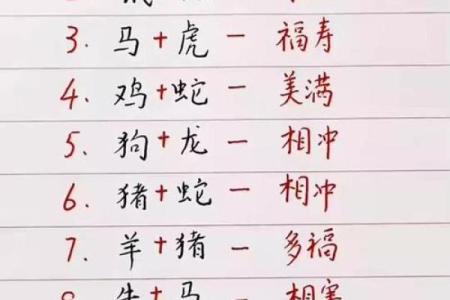 3. 马+虎 — 福寿
4. 鸡+蛇 — 美满
5. 狗+龙 — 相冲
6. 猪+蛇 — 相冲
7. 羊+猪 — 多福
8. 牛+马 — 相害